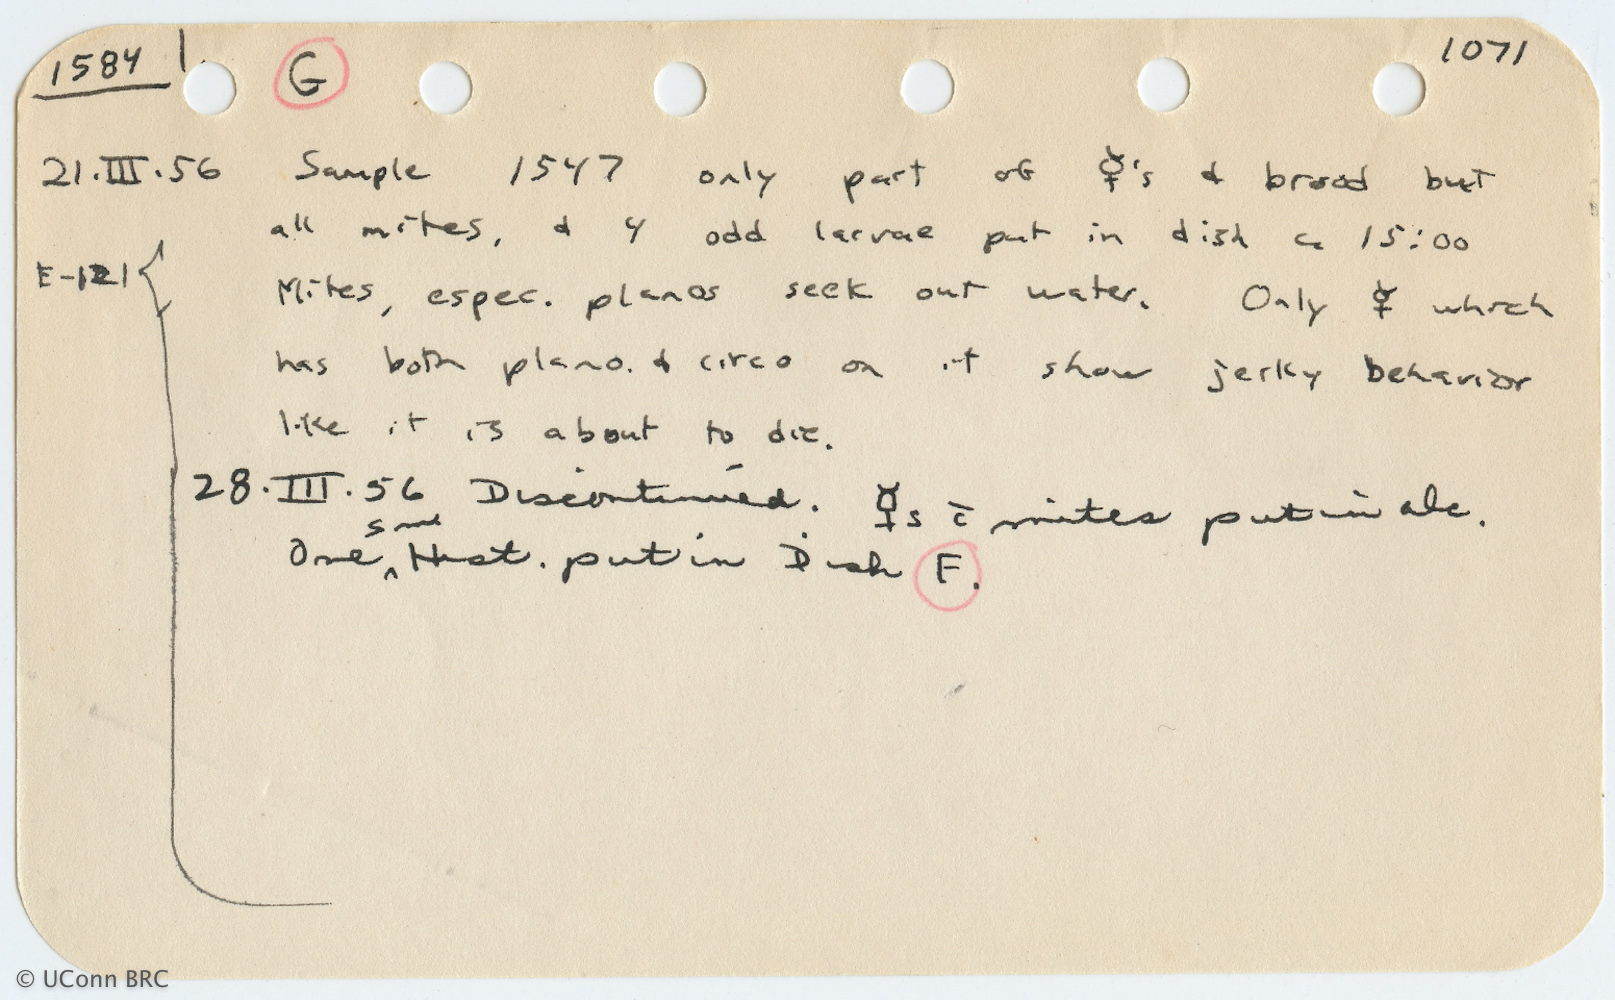 1584 G 1071
21.III.56 Sample 1547 only part of ☿'s & brood but
all mites, & 4 odd larvae put in dish ca 15:00
E-121
Mites, espec. planos seek out water. Only ☿ which
has both plano. & circo on it show jerky behavior
like it is about to die.
28.III.56 Discontinued. ☿s c̄ mites put in alc.
One ‸ Hist. put in Dish F.
© UConn BRC